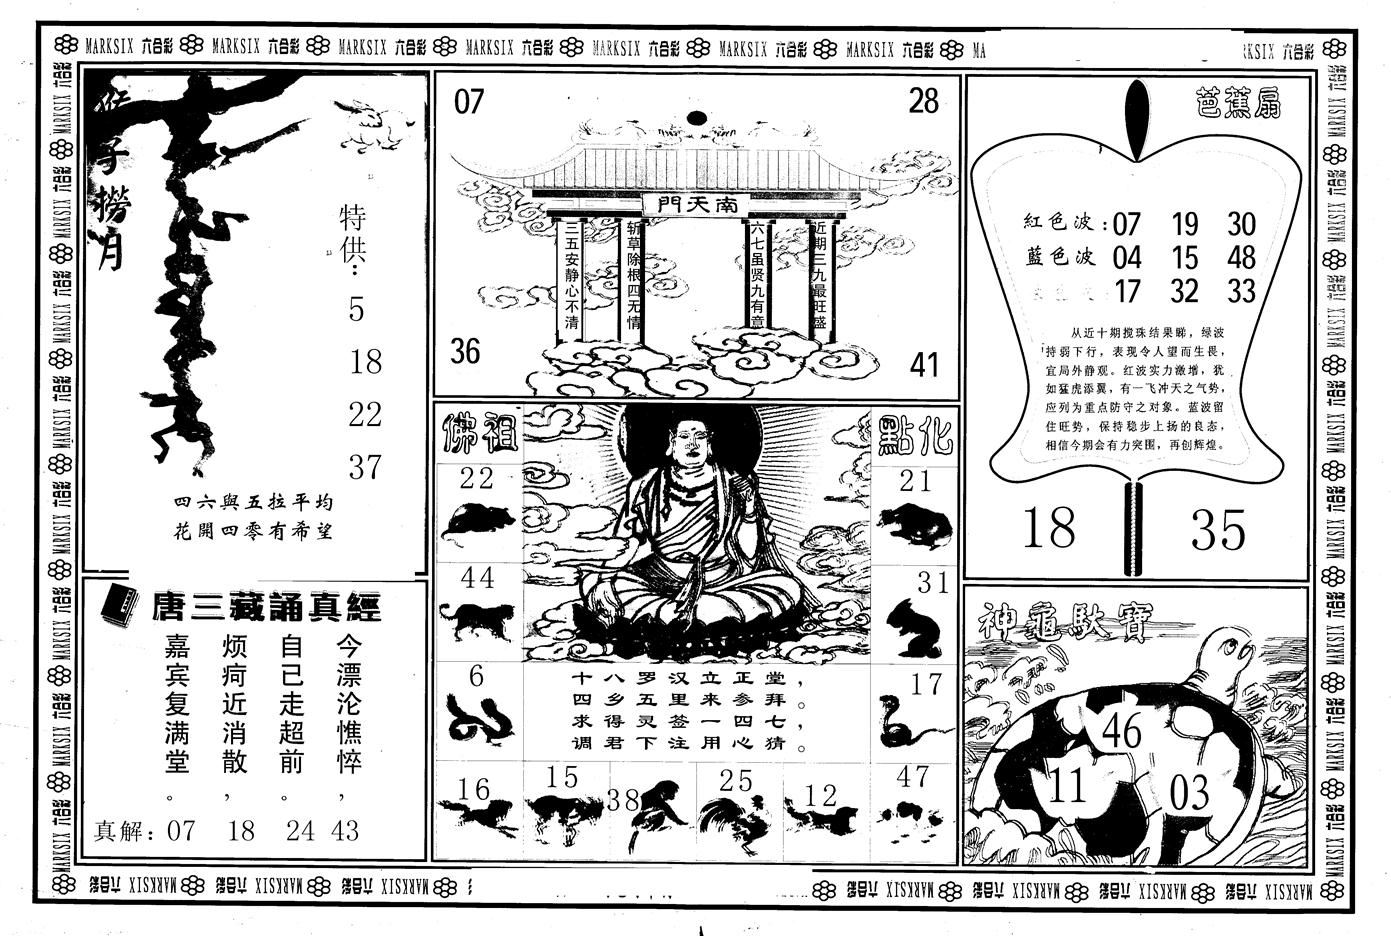 MARKSIX 六合彩 MARKSIX 六合彩 MARKSIX 六合彩 MARKSIX 六合彩 MARKSIX 六合彩 MARKSIX 六合彩 MARKSIX 六合彩 MA
KSIX 六合彩
猴子撈月
特供：
5
18
22
37
四六與五拉平均
花開四零有希望
07
28
南天門
三五安静心不清
斩草除根四无情
六七虽贤九有意
近期三九最旺盛
36
41
芭蕉扇
紅色波：07 19 30
藍色波 04 15 48
17 32 33
从近十期搅珠结果睇，绿波
持弱下行，表现令人望而生畏，
宜局外静观。红波实力激增，犹
如猛虎添翼，有一飞冲天之气势，
应列为重点防守之对象。蓝波留
住旺势，保持稳步上扬的良态，
相信今期会有力突围，再创辉煌。
18
35
佛祖
點化
22
21
44
31
6
17
十八罗汉立正堂，
四乡五里来参拜。
求得灵签一四七，
调君下注用心猜。
16
15
38
25
12
47
唐三藏誦真經
今漂沦憔悴，
自已走超前。
烦疴近消散，
嘉宾复满堂。
真解：07 18 24 43
神龜馱寶
46
11
03
MARKSIX 六合彩 MARKSIX 六合彩 MARKSIX 六合彩
MARKSIX 六合彩 MARKSIX 六合彩 MARKSIX 六合彩 MARKSIX 六合彩